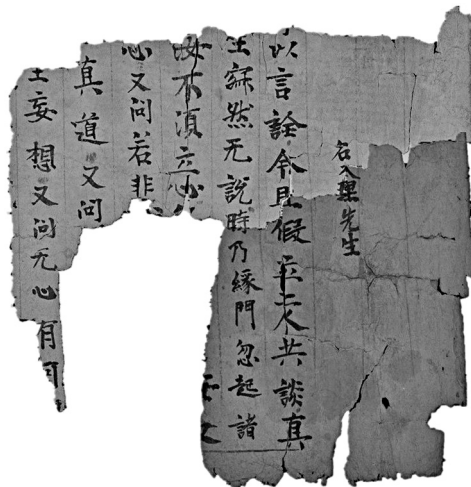 名入理先生
以言詮今且假立二人共談真
生寂然无說時乃緣門忽起諸
汝不須立心
心又問若非
真道又問
生妄想又問无心有何